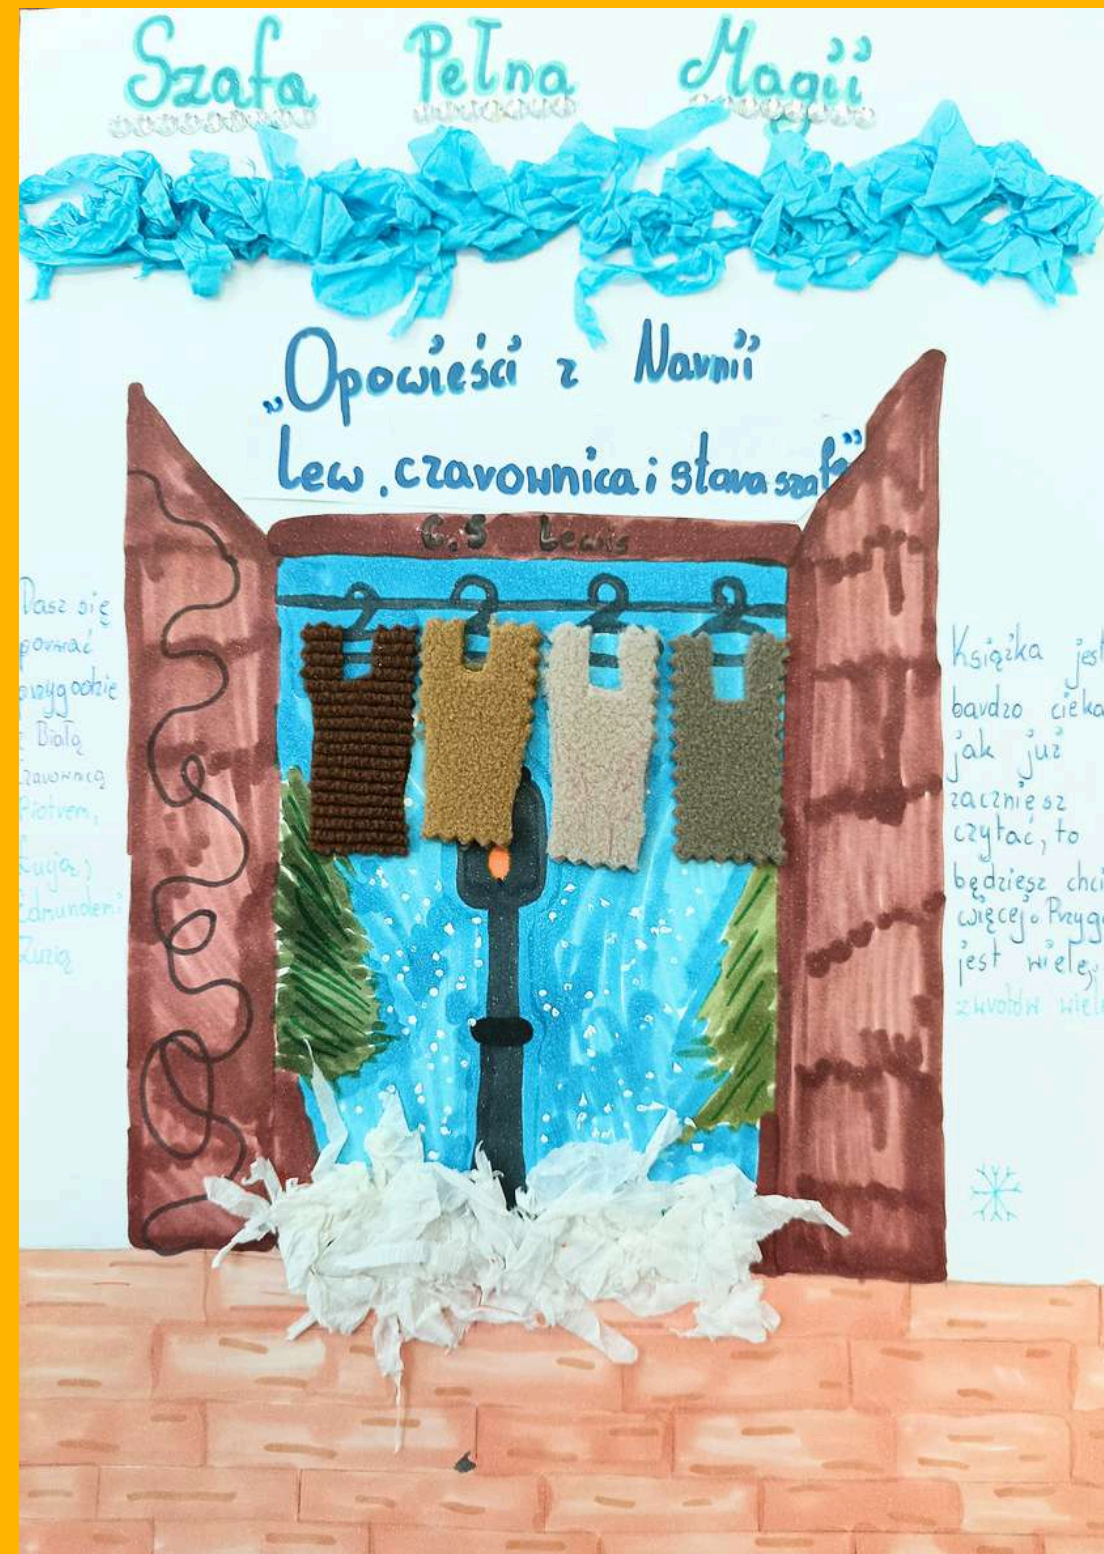 Szafa Pełna Magii
„Opowieści z Narnii
Lew, czarownica i stara szafa”
C.S Lewis
Dasz się
porwać
przygodzie
z Białą
Czarownicą
Piotrem,
Łucją,
Edmundem i
Zuzią
Książka jest
bardzo cieka
jak już
zaczniesz
czytać, to
będziesz chci
więcej. Przygó
jest wiele,
zwrotów wiele